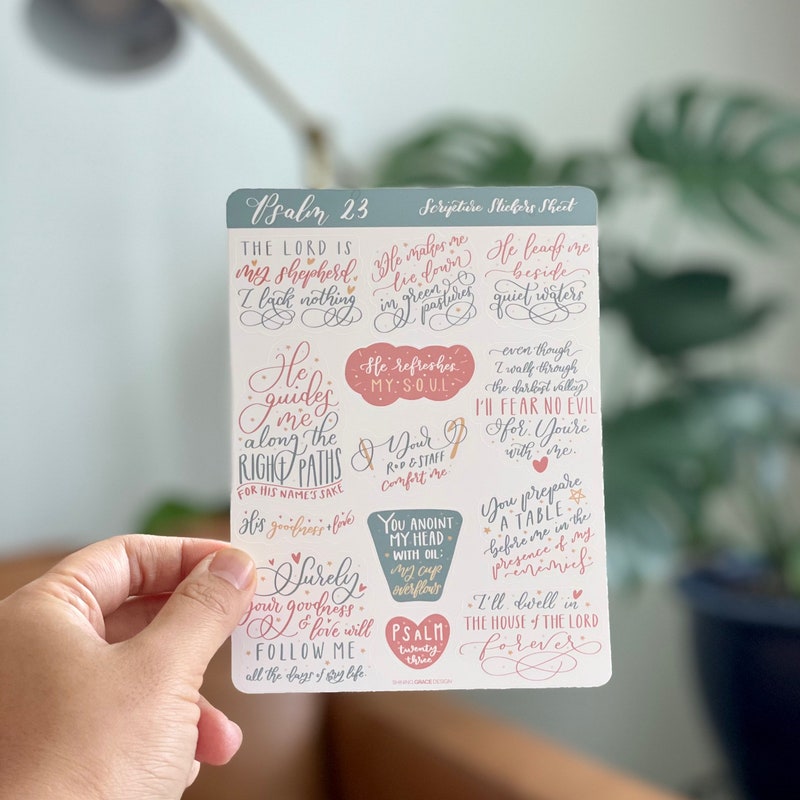 Psalm 23
Scripture Stickers Sheet
THE LORD IS
my shepherd,
I lack nothing
He makes me
lie down
in green
pastures
He leads me
beside
quiet waters
He
guides
me
along the
RIGHT PATHS
FOR HIS NAME'S SAKE
He refreshes
MY SOUL
even though
I walk through
the darkest valley
I'll FEAR NO EVIL
for You're
with me.
Your
ROD & STAFF
Comfort me
His goodness + love
YOU ANOINT
MY HEAD
WITH OIL:
my cup
overflows
You prepare
A TABLE
before me in the
presence of my
enemies
Surely
your goodness
& love will
FOLLOW ME
all the days of my life.
PSALM
twenty
three
I'll dwell in
THE HOUSE of THE LORD
forever
SHINING GRACE DESIGN